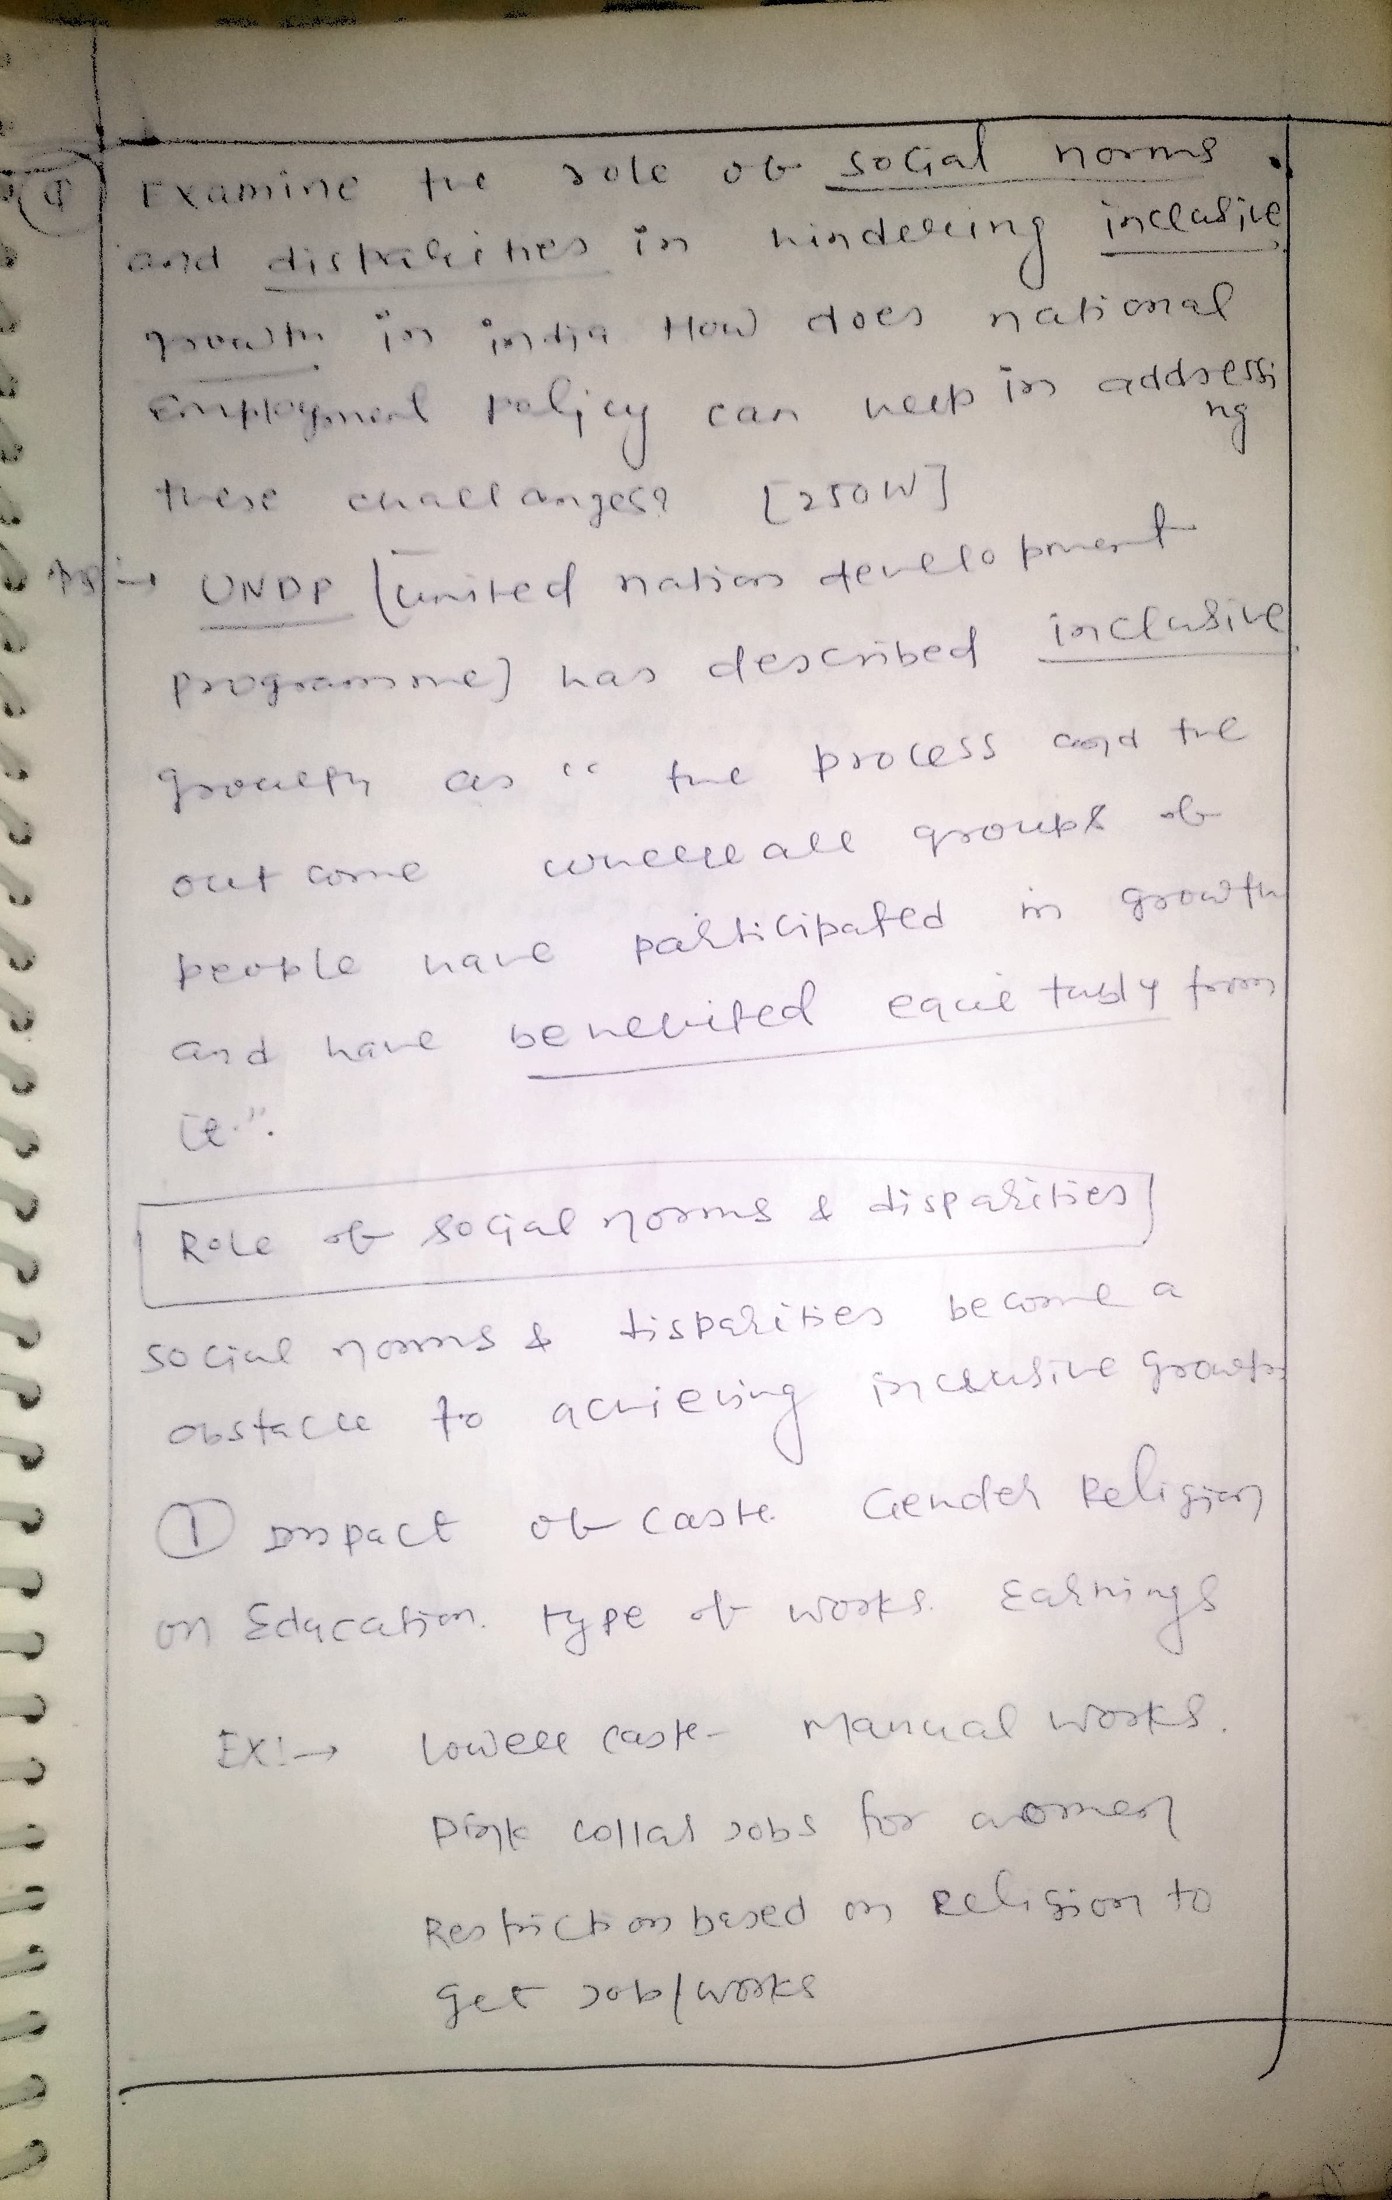 Q1 Examine the role of social norms
and disparities in hindering inclusive
growth in india How does national
Employment policy can help in addressi
ng
these challanges? [250W]
Ans:→ UNDP (united nation development
programme) has described inclusive
growth as "the process and the
out come where all groups of
people have participated in growth
and have benefited equitably from
it.".
Role of social norms & disparities
social norms & disparities become a
obstacle to achieving inclusive growth
① Impact of caste Gender Religion
on Education. type of works. Earnings
EX:→ Lower caste- Manual works.
Pink collar Jobs for women
Restriction based on Religion to
get Job/works